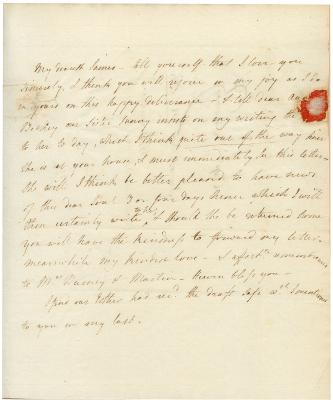 My dearest James – tell yourself that I love you
sincerely, I think you will rejoice in my joy as I do
in yours on this happy deliverance – I tell dear
our Sister insists on my writing
to her to day, which I think quite out of the way since
she is at your house, & must immediately see this letter
She will I think be better pleased to have news
of this dear soul 3 or four days hence which I will
then certainly write, & should she be returned home
you will have the kindness to forward my letter
meanwhile my kindest love – & affect. remembrances
to Mrs & Martin – Heaven bless you –
our Father had recd. the draft safe wch. I mentioned
to you in my last.